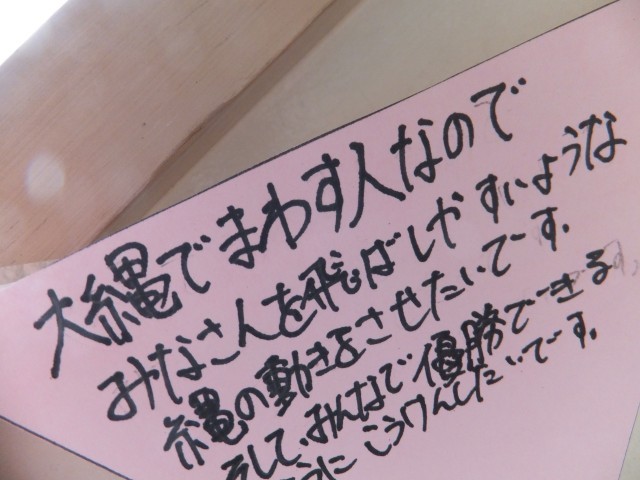 大縄でまわす人なので
みなさんを飛ばしやすいような
縄の動きをさせたいです。
そして、みんなで優勝できる
ようにこうけんしたいです。